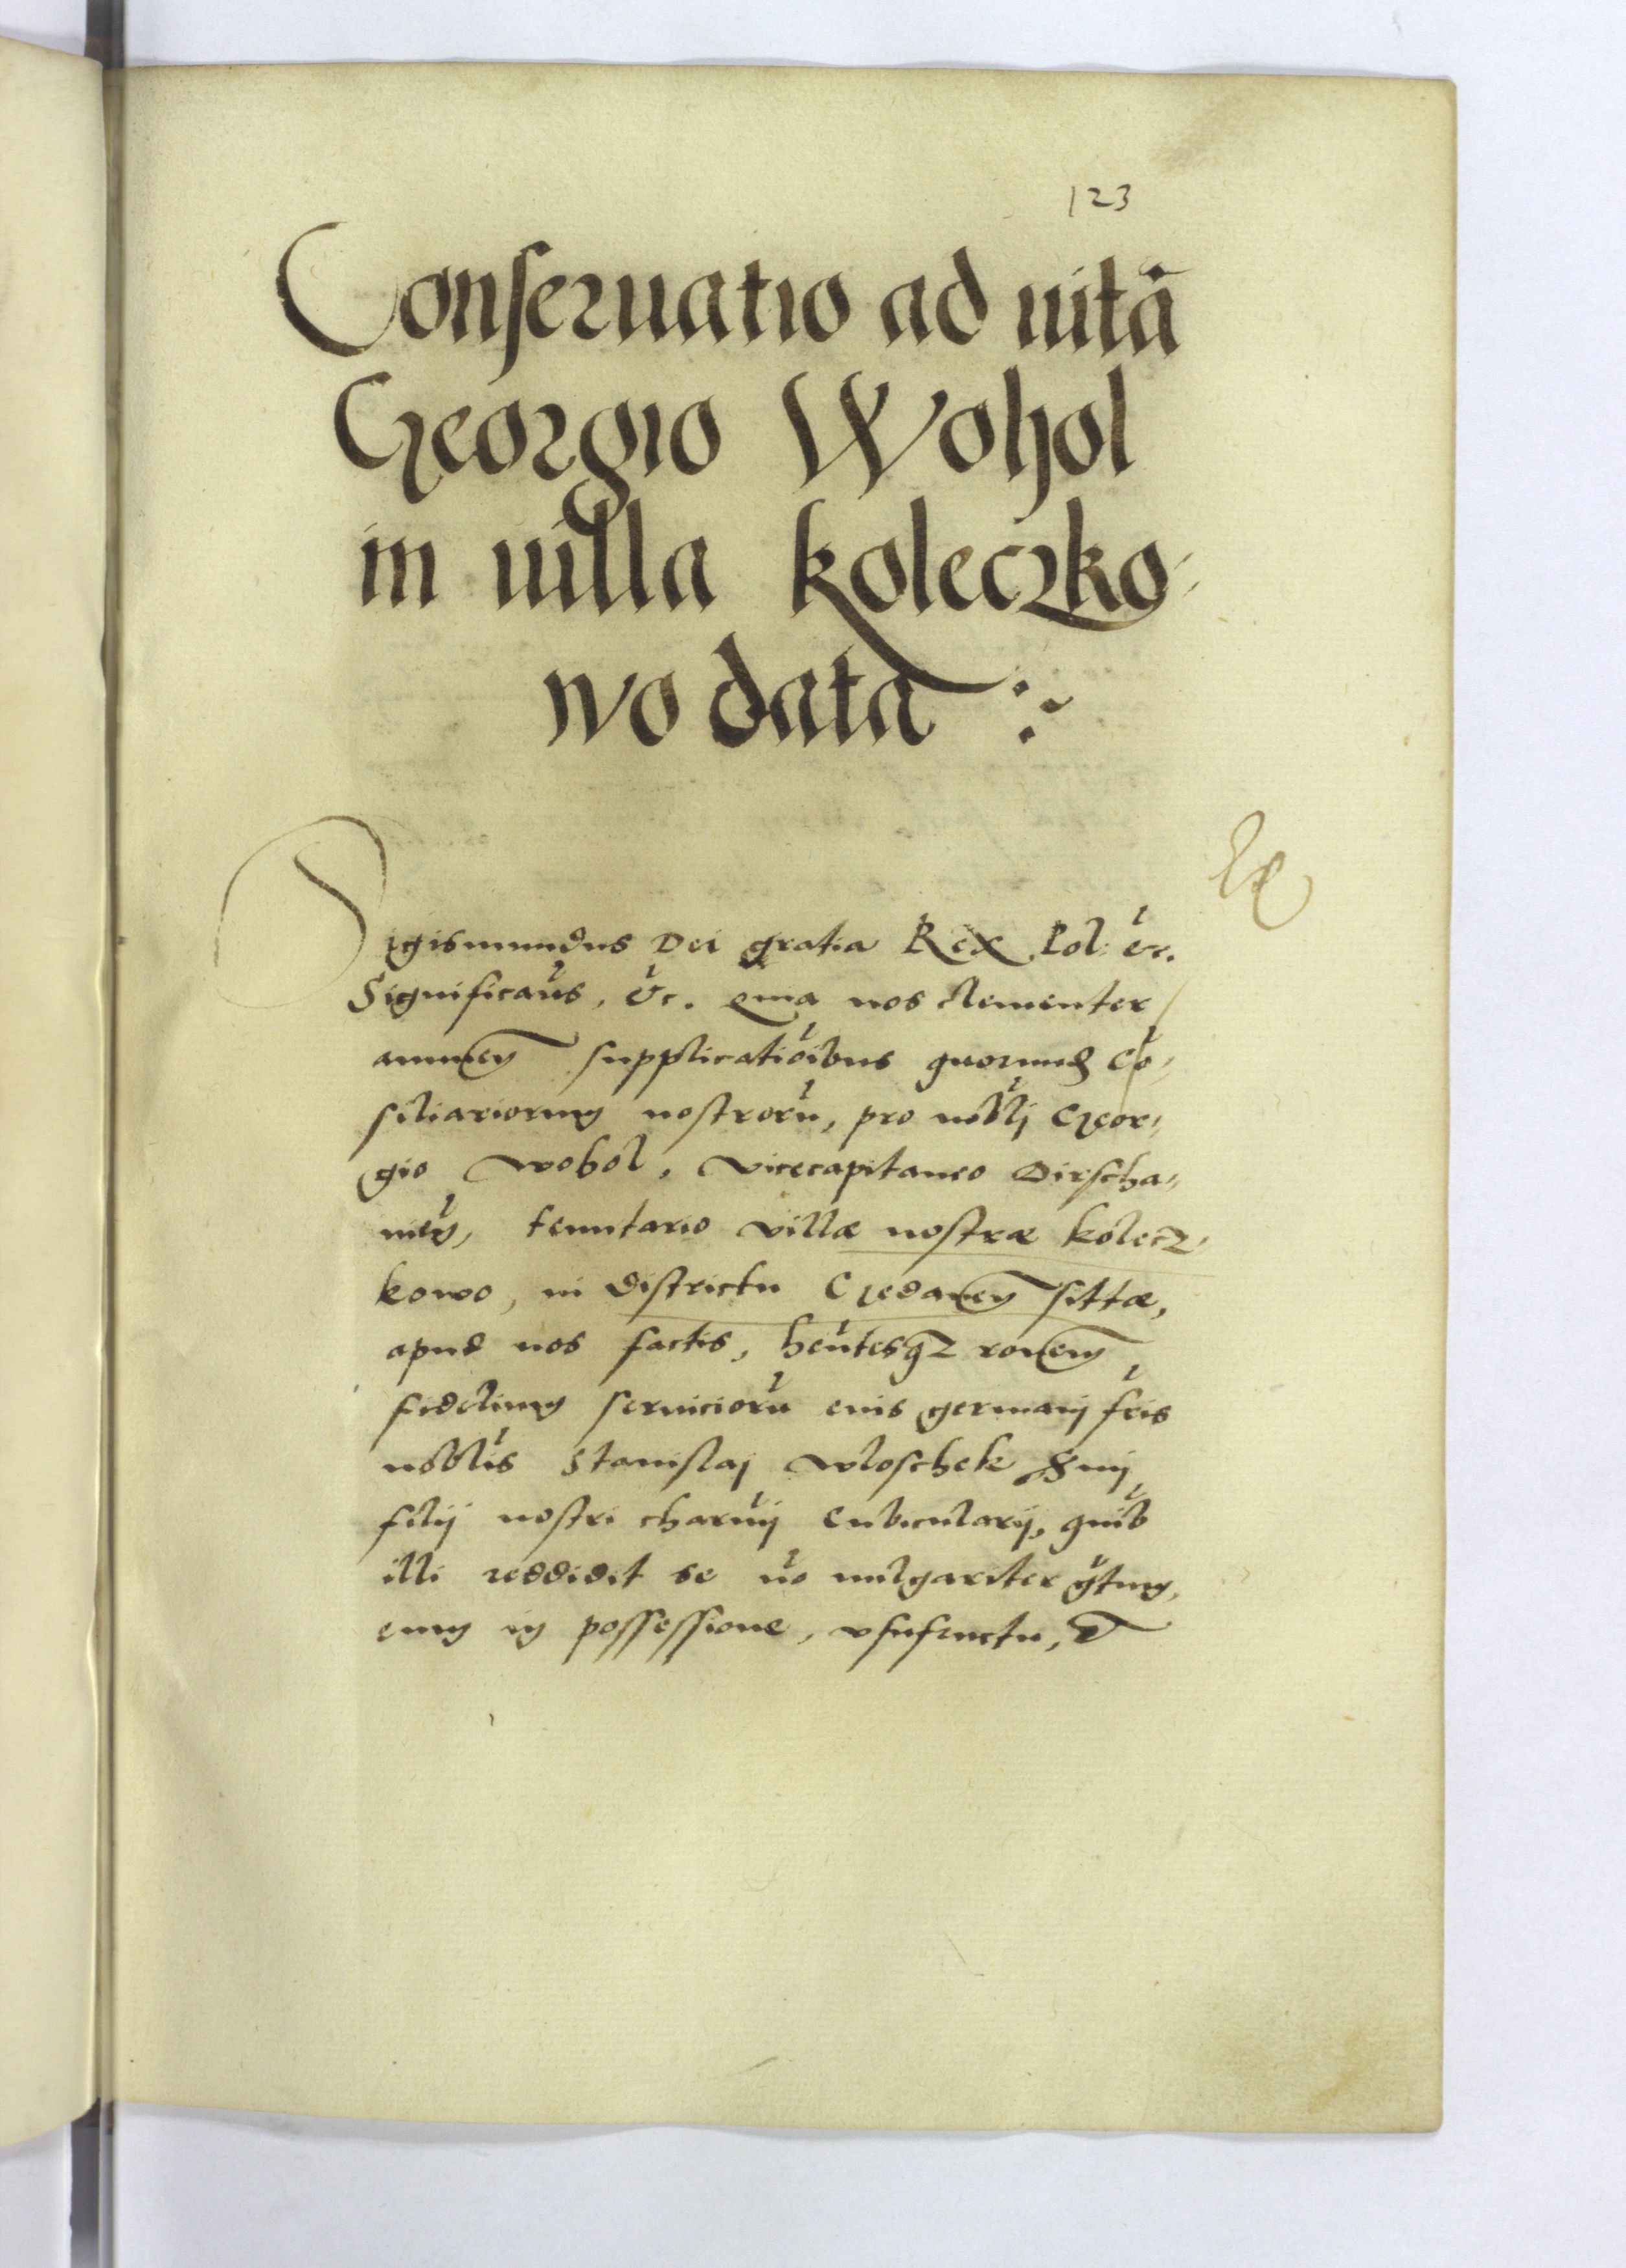 123
Conseruatio ad uitā
Georgio Wohol
in uilla koleczko-
wo data
Sigismundus Dei gratia Rex Pol: &c.
Significam̃s, &c. Quia nos clementer
annuen supplicatiõibus quorund Cõ-
siliariorum nostrorũ, pro nobli Geor-
gio Wohol, vicecapitaneo Dirscha-
nien, tenutario villæ nostræ kolecz-
kowo, in districtu Gedanen sittæ,
apud nos factis, hẽntesq3 ronem
fidelium seruiciorũ eius germanj fris
noblis Stanislaj Wloschek
filij nostri charmj Cubicularij, quib
illi reddidit se nõ uulgariter gtum,
eum in possessione, vsufructu, &